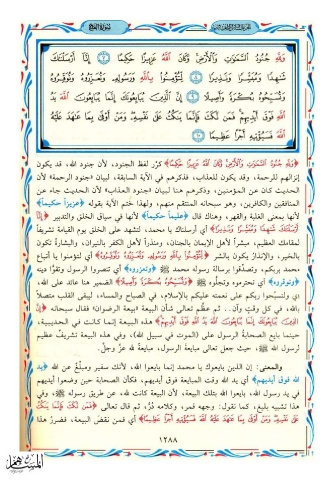 وَلِلَّهِ جُنُودُ السَّمَٰوَٰتِ وَالْأَرْضِ وَكَانَ اللَّهُ عَزِيزًا حَكِيمًا ٧ إِنَّا أَرْسَلْنَٰكَ
شَٰهِدًا وَمُبَشِّرًا وَنَذِيرًا ٨ لِّتُؤْمِنُوا بِاللَّهِ وَرَسُولِهِ وَتُعَزِّرُوهُ وَتُوَقِّرُوهُ
وَتُسَبِّحُوهُ بُكْرَةً وَأَصِيلًا ٩ إِنَّ الَّذِينَ يُبَايِعُونَكَ إِنَّمَا يُبَايِعُونَ اللَّهَ يَدُ
اللَّهِ فَوْقَ أَيْدِيهِمْ فَمَن نَّكَثَ فَإِنَّمَا يَنكُثُ عَلَىٰ نَفْسِهِ وَمَنْ أَوْفَىٰ بِمَا عَٰهَدَ عَلَيْهُ
اللَّهَ فَسَيُؤْتِيهِ أَجْرًا عَظِيمًا ١٠
﴿وَلِلَّهِ جُنُودُ السَّمَٰوَٰتِ وَالْأَرْضِ وَكَانَ اللَّهُ عَزِيزًا حَكِيمًا﴾ كرّر لفظ الجنود، لأن جنود الله، قد يكون
إنزالهم للرحمة، وقد يكون للعذاب، فذكرهم في الآية السابقة، لبيان «جنود الرحمة» لأن
الحديث كان عن المؤمنين، وذكرهم هنا لبيان «جنود العذاب» لأن الحديث جاء عن
المنافقين والكافرين، وهو سبحانه المنتقم منهم، ولهذا ختم الآية بقوله ﴿عزيزاً حكيماً﴾
لأنها بمعنى الغلبة والقهر، وهناك قال ﴿عليماً حكيماً﴾ لأنها في سياق الخلق والتدبير ﴿إِنَّا
أَرْسَلْنَٰكَ شَٰهِدًا وَمُبَشِّرًا وَنَذِيرًا﴾ أي أرسلناك يا محمد، لتشهد على الخلق يوم القيامة تشريفاً
لمقامك العظيم، مبشراً لأهل الإيمان بالجنان، ومنذراً لأهل الكفر بالنيران، والبشارة تكون
بالخير، والإنذار يكون بالشر ﴿لِّتُؤْمِنُوا بِاللَّهِ وَرَسُولِهِ وَتُعَزِّرُوهُ وَتُوَقِّرُوهُ﴾ أي لتؤمنوا يا أتباع
محمد بربكم، وتصدّقوا برسالة رسوله محمد ﷺ ﴿وتعزروه﴾ أي تنصروا الرسول وتقرّا دينه
﴿وتوقروه﴾ أي تحترموه وتجلّوه ﷺ ﴿وَتُسَبِّحُوهُ بُكْرَةً وَأَصِيلًا﴾ الضمير هنا عائد على الله،
أي ولتسبحوا ربكم على نعمته عليكم بالإسلام، في الصباح والمساء، ليبقى القلب متصلاً
بالله، في كل وقتٍ وآن. . ثم عظّم تعالى شأن البيعة «بيعة الرضوان» فقال سبحانه ﴿إِنَّ
الَّذِينَ يُبَايِعُونَكَ إِنَّمَا يُبَايِعُونَ اللَّهَ يَدُ اللَّهِ فَوْقَ أَيْدِيهِمْ﴾ هذه البيعة إنما كانت في الحديبية،
حينما بايع الصحابة الرسول على (الموت في سبيل الله)، وفي هذه البيعة تشريفٌ عظيم
لرسول الله ﷺ، حيث جعل تعالى مبايعة الرسول، مبايعة لله عزَّ وجلَّ.
والمعنى: إن الذين بايعوك يا محمد إنما بايعوا الله، لأنك سفير ومبلّغ عن الله ﴿يد
الله فوق أيديهم﴾ أي يد الله وقت المبايعة فوق أيديهم، فكأن الصحابة حين وضعوا أيديهم
في يد رسول الله، بايعوا الله بتلك البيعة، لأن البيعة كانت لله، عن طريق رسوله ﷺ، وفي
هذا تشبيه بليغ، كما نقول: وجهه قمر، وكلامه دُرّ، ثم قال تعالى ﴿فَمَن نَّكَثَ فَإِنَّمَا يَنكُثُ
عَلَىٰ نَفْسِهِ وَمَنْ أَوْفَىٰ بِمَا عَٰهَدَ عَلَيْهُ اللَّهَ فَسَيُؤْتِيهِ أَجْرًا عَظِيمًا﴾ أي فمن نقضَ البيعة، فضررُ هذا
١٢٨٨